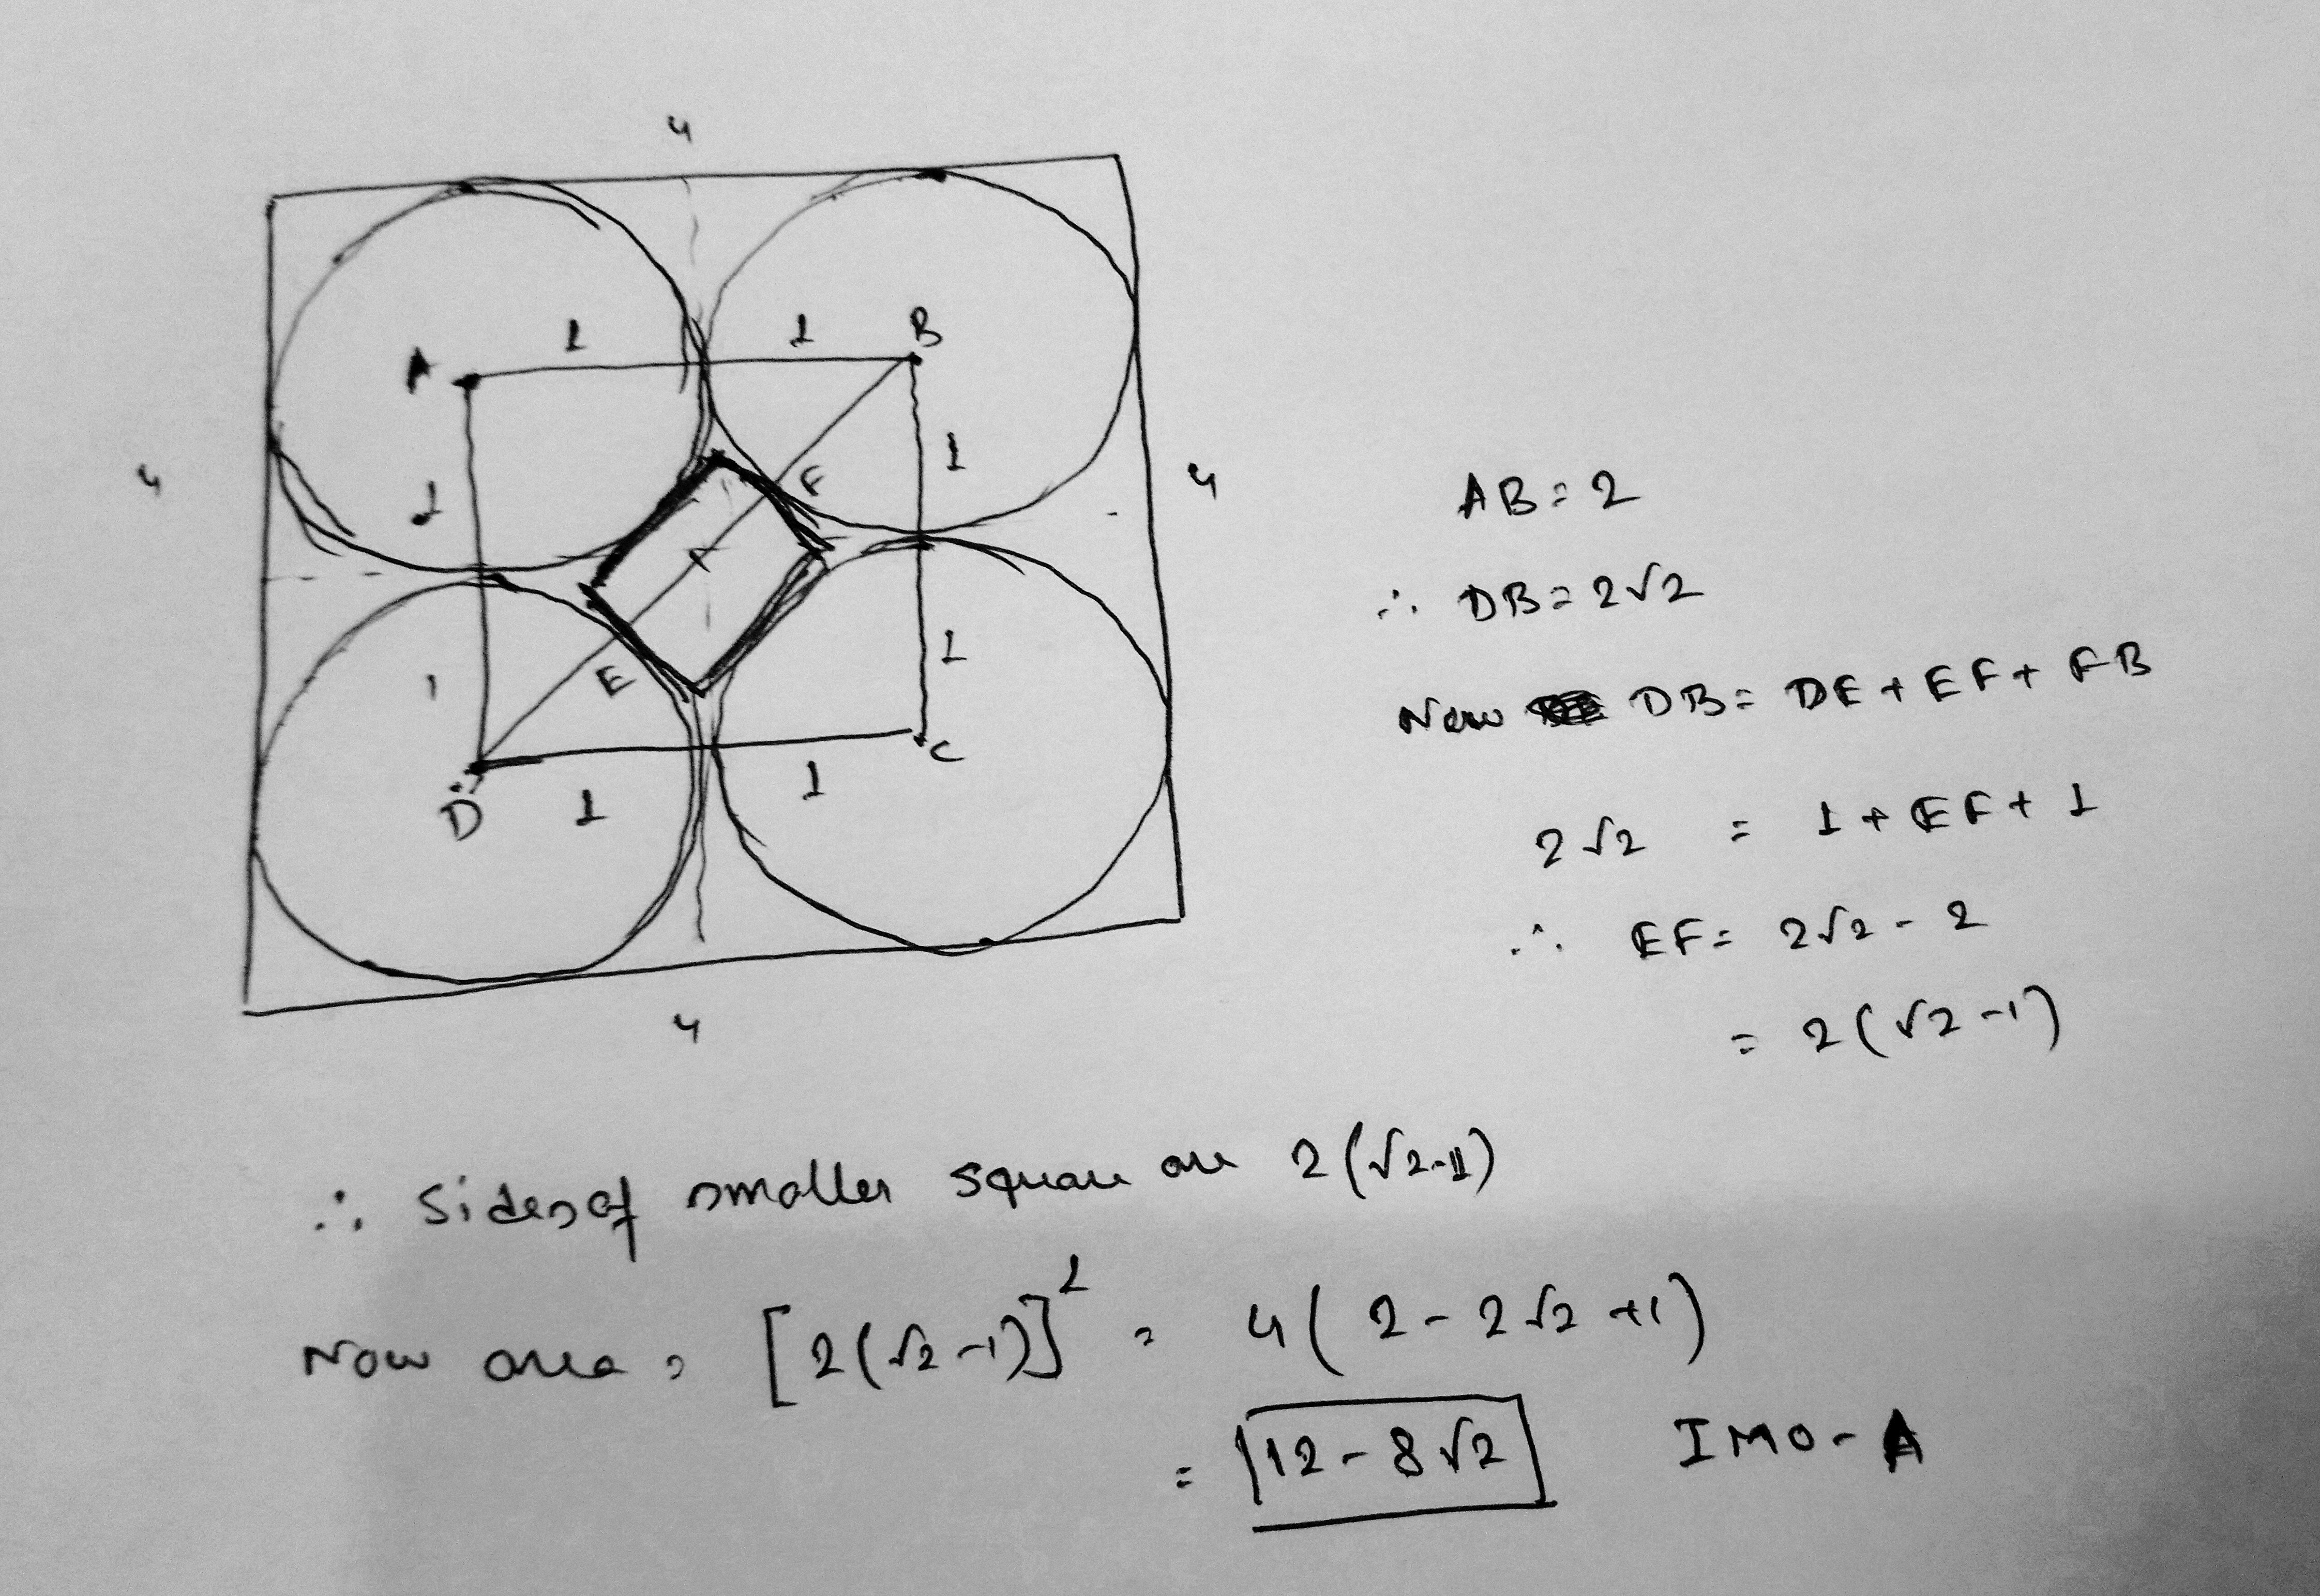 4
1 1 B
A
1 1
4 F 4
1 1
E
C
D 1 1
4
AB = 2
∴ DB = 2√2
Now DB = DE + EF + FB
2√2 = 1 + EF + 1
∴ EF = 2√2 - 2
= 2(√2-1)
∴ Sides of smaller square are 2(√2-1)
Now area = [2(√2-1)]² = 4(2-2√2+1)
= 12-8√2 IMO-A